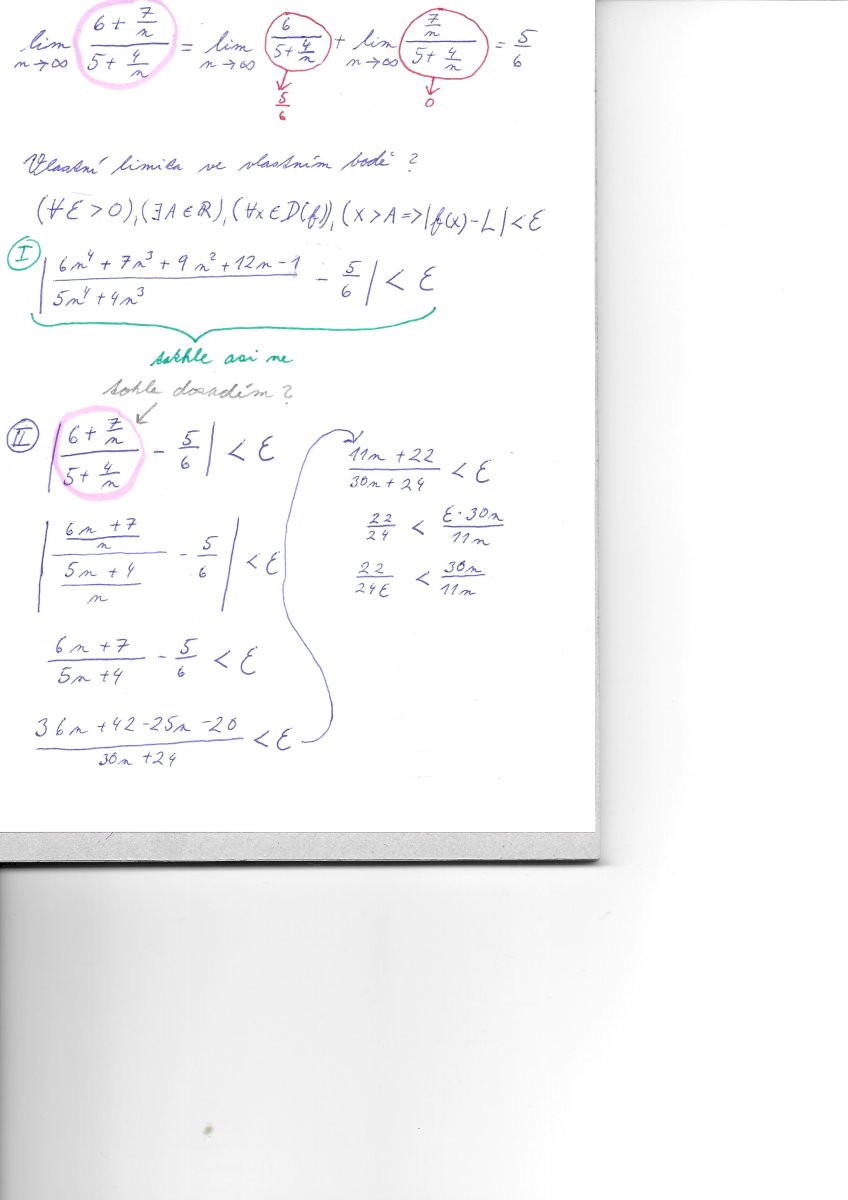 lim n→∞ (6 + 7/n)/(5 + 4/n) = lim n→∞ 6/(5 + 4/n) + lim n→∞ (7/n)/(5 + 4/n) = 5/6
5/6 0
Vlastní limita ve vlastním bodě ?
(∀ε > 0), (∃A ∈ R), (∀x ∈ D(f)), (x > A => |f(x) - L| < ε
I | (6n⁴ + 7n³ + 9n² + 12n - 1)/(5n⁴ + 4n³) - 5/6 | < ε
takhle asi ne
tohle dosadím ?
II | (6 + 7/n)/(5 + 4/n) - 5/6 | < ε
| ((6n + 7)/n)/((5n + 4)/n) - 5/6 | < ε
(6n + 7)/(5n + 4) - 5/6 < ε
(36n + 42 - 25n - 20)/(30n + 24) < ε
(11n + 22)/(30n + 24) < ε
22/24 < (ε · 30n)/(11n)
22/(24ε) < 30n/(11n)